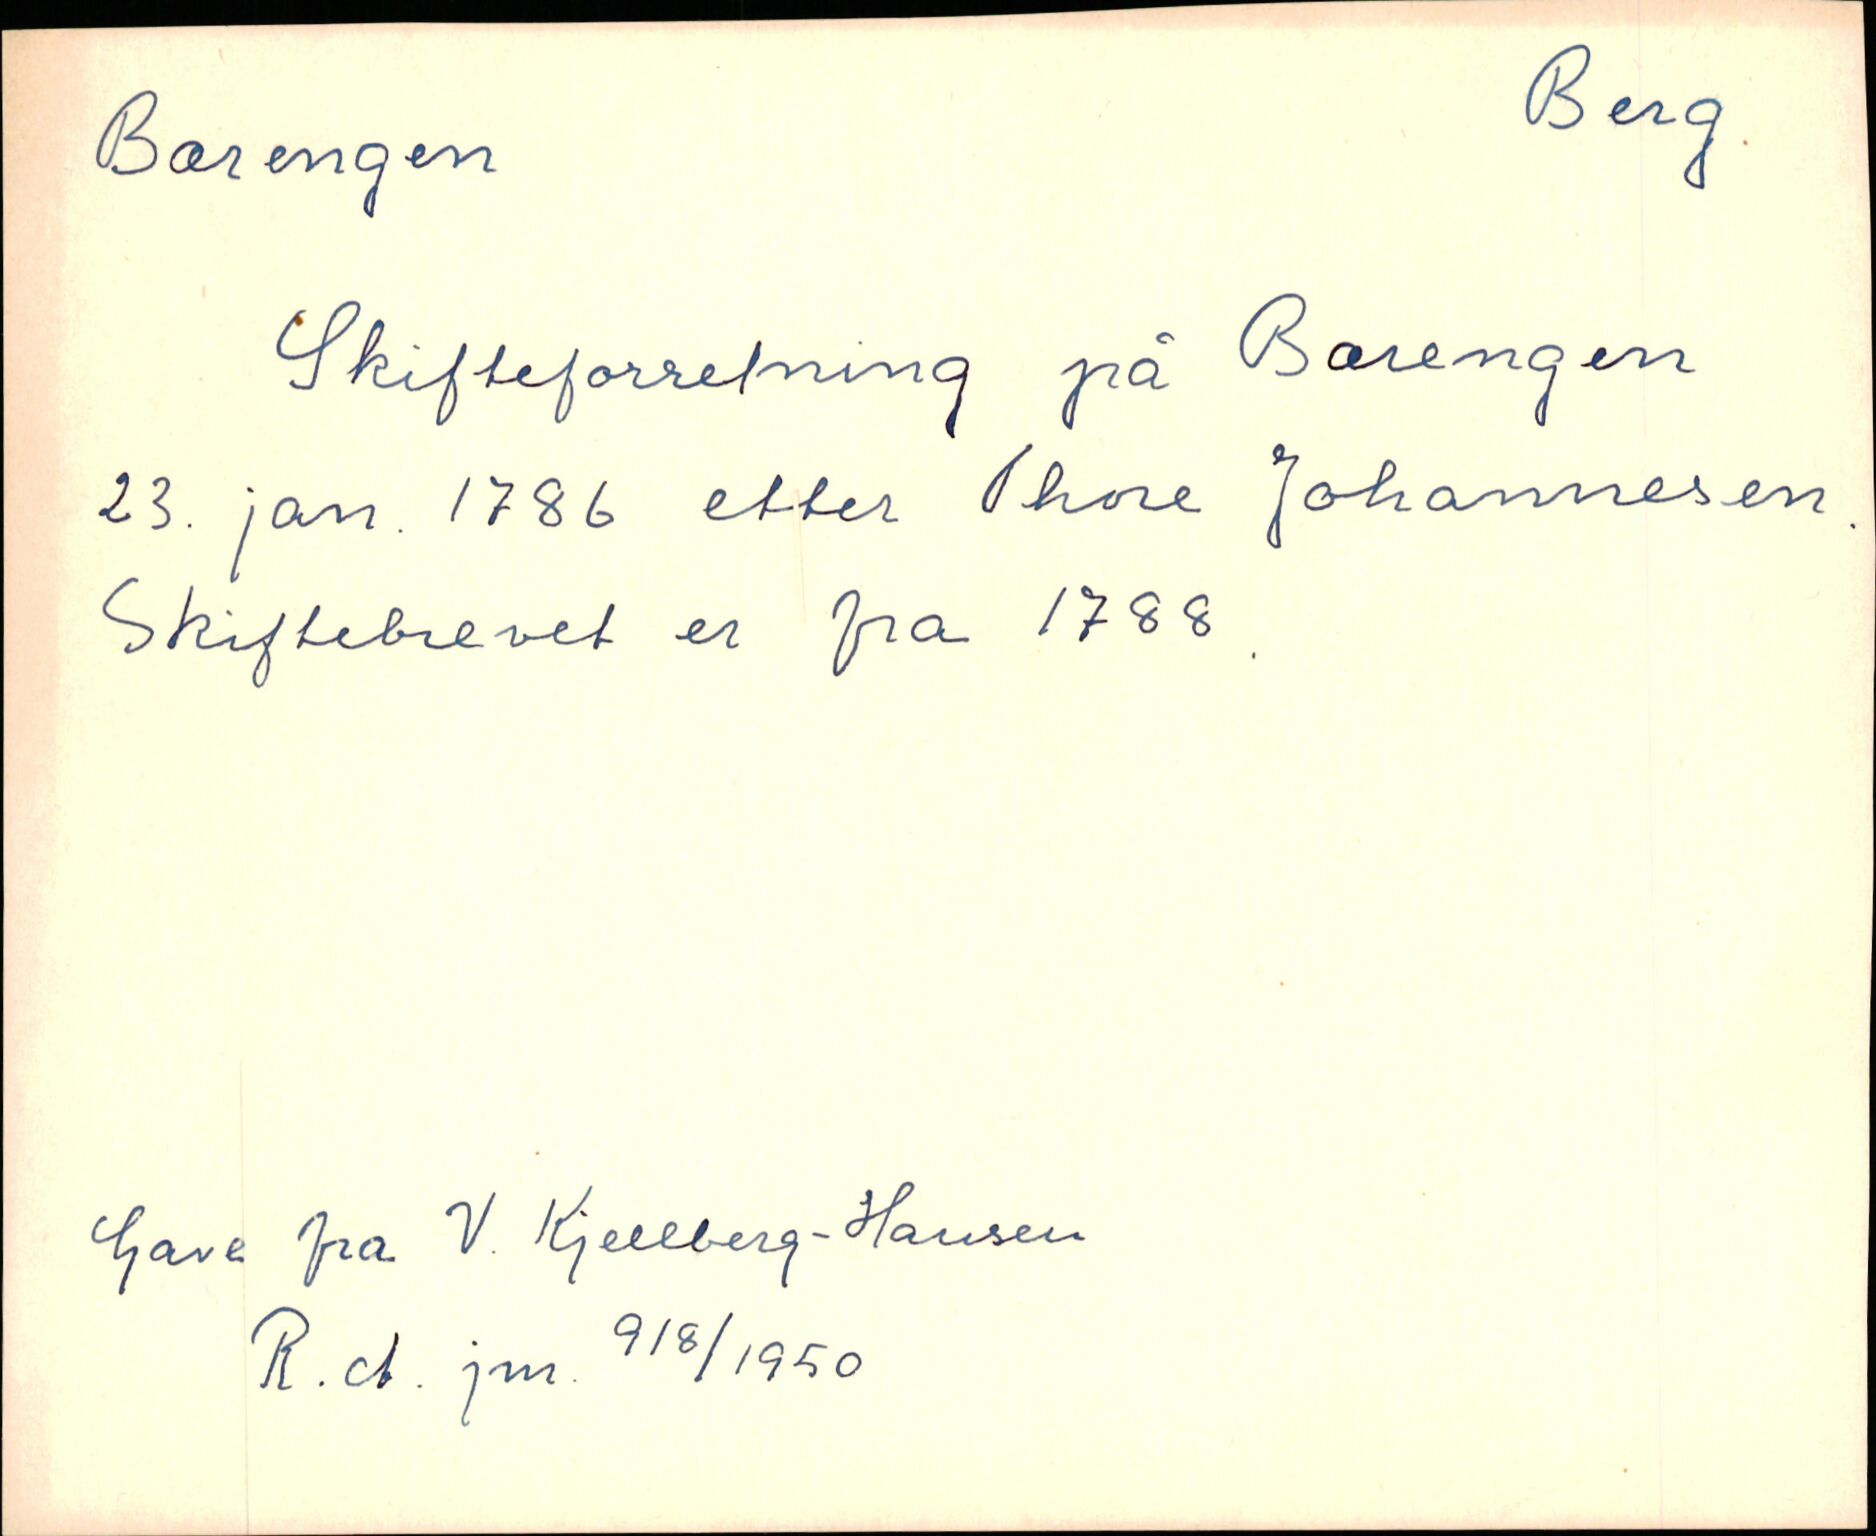 Berg.
Bærengen
Skifteforretning på Bærengen
23. jan. 1786 etter Thore Johannesen.
Skiftebrevet er fra 1788.
Gave fra V. Kjellberg-Hansen
R.d. jnr. 918/1950